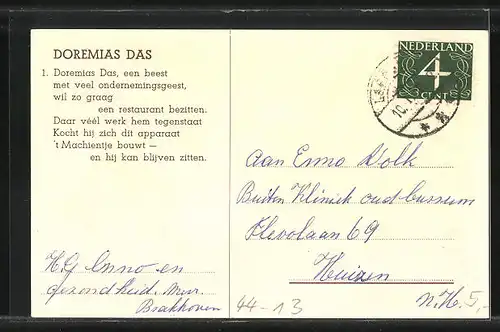 DOREMIAS DAS
1. Doremias Das, een beest
met veel ondernemingsgeest,
wil zo graag
een restaurant bezitten.
Daar véél werk hem tegenstaat
Kocht hij zich dit apparaat
't Machientje bouwt —
en hij kan blijven zitten.
H.G Enno en
gezondheid. Mevr.
Brakhoven
44-13
NEDERLAND
4
CENT
10.
Aan Enno Dolk
Buiten Kliniek oud bussum
Flevolaan 69
Huizen
N.H. 5,-